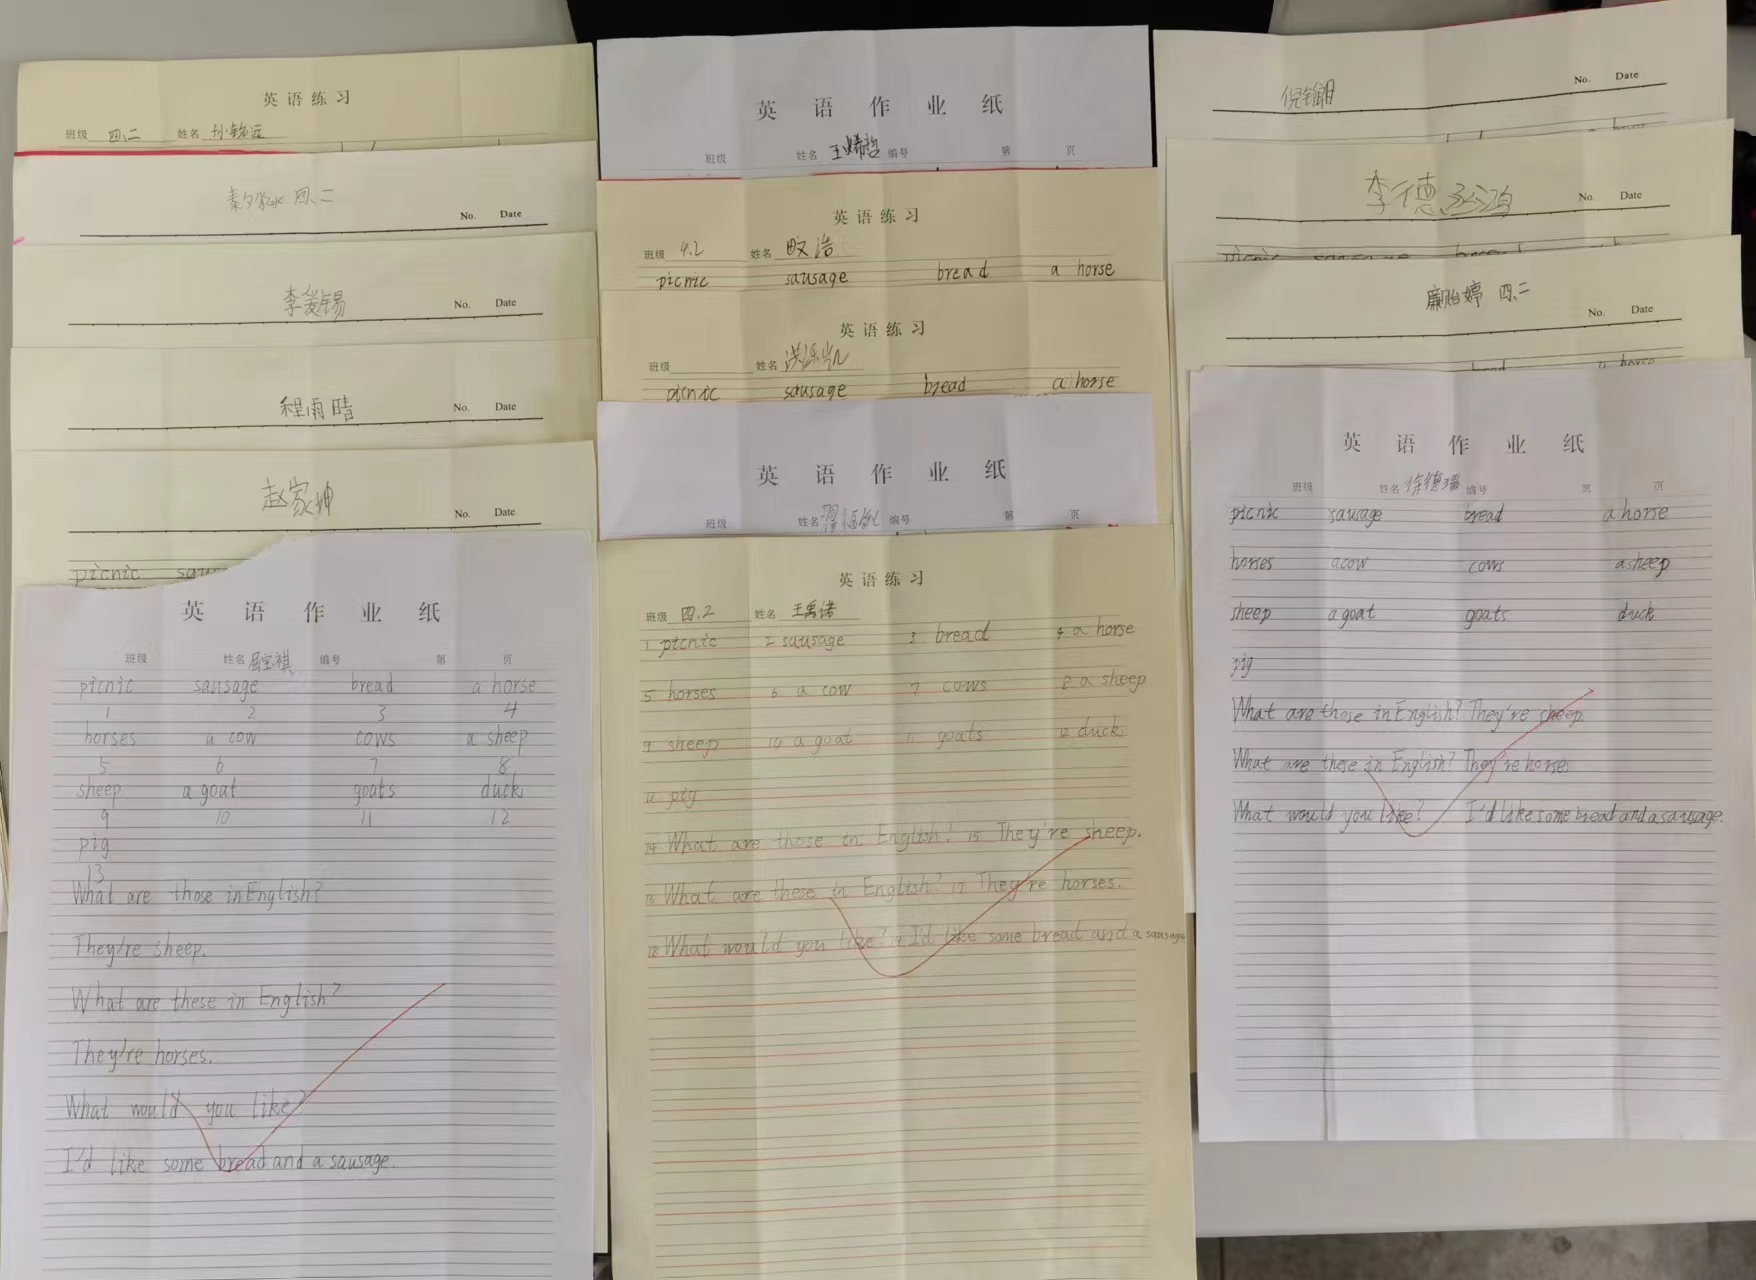 英语练习
班级 四.二 姓名
四.二
No. Date
No. Date
程雨晴 No. Date
赵家坤
No. Date
picnic
英语作业纸
班级 姓名 编号 第 页
picnic sausage bread a horse
1 2 3 4
horses a cow cows a sheep
5 6 7 8
sheep a goat goats duck
9 10 11 12
pig
13
What are those in English?
They're sheep.
What are these in English?
They're horses.
What would you like?
I'd like some bread and a sausage.
英语作业纸
班级 姓名 编号 第 页
英语练习
班级 4.2 姓名
picnic sausage bread a horse
英语练习
班级 姓名
picnic sausage bread a horse
英语作业纸
班级 姓名 编号 第 页
英语练习
班级 四.2 姓名 王禹诺
1 picnic 2 sausage 3 bread 4 a horse
5 horses 6 a cow 7 cows 8 a sheep
9 sheep 10 a goat 11 goats 12 duck
13 pig
14 What are those in English? 15 They're sheep.
16 What are these in English? 17 They're horses.
18 What would you like? 19 I'd like some bread and a sausage
No. Date
李德
No. Date
picnic sausage bread
婷 四.二
No. Date
英语作业纸
班级 姓名 徐德瑞 编号 第 页
picnic sausage bread a horse
horses a cow cows a sheep
sheep a goat goats duck
pig
What are those in English? They're sheep.
What are these in English? They're horse.
What would you like? I'd like some bread and a sausage.